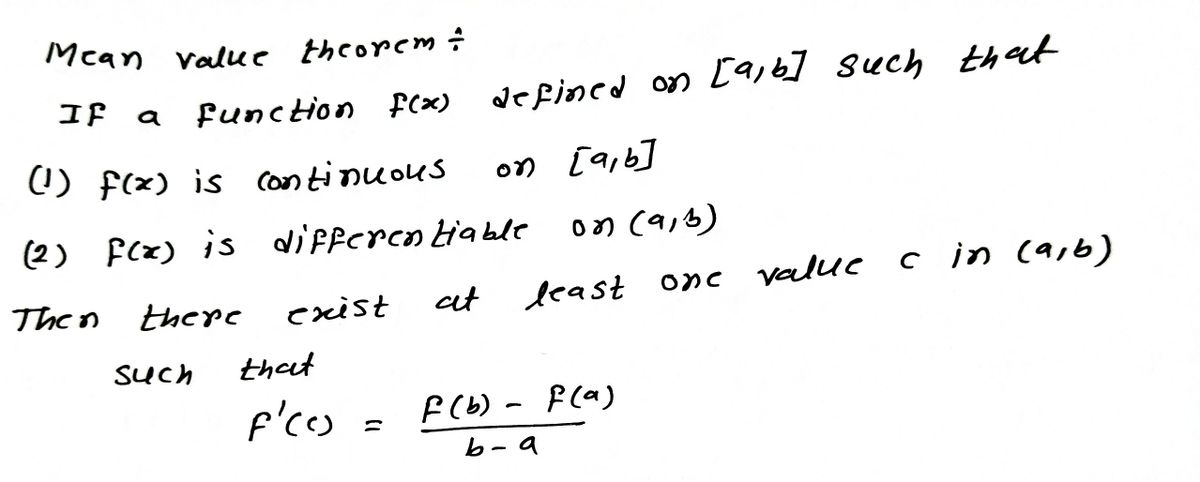 Mean value theorem ÷
If a function f(x) defined on [a,b] such that
(1) f(x) is continuous on [a,b]
(2) f(x) is differentiable on (a,b)
Then there exist at least one value c in (a,b)
such that
f'(c) = \frac{f(b) - f(a)}{b - a}